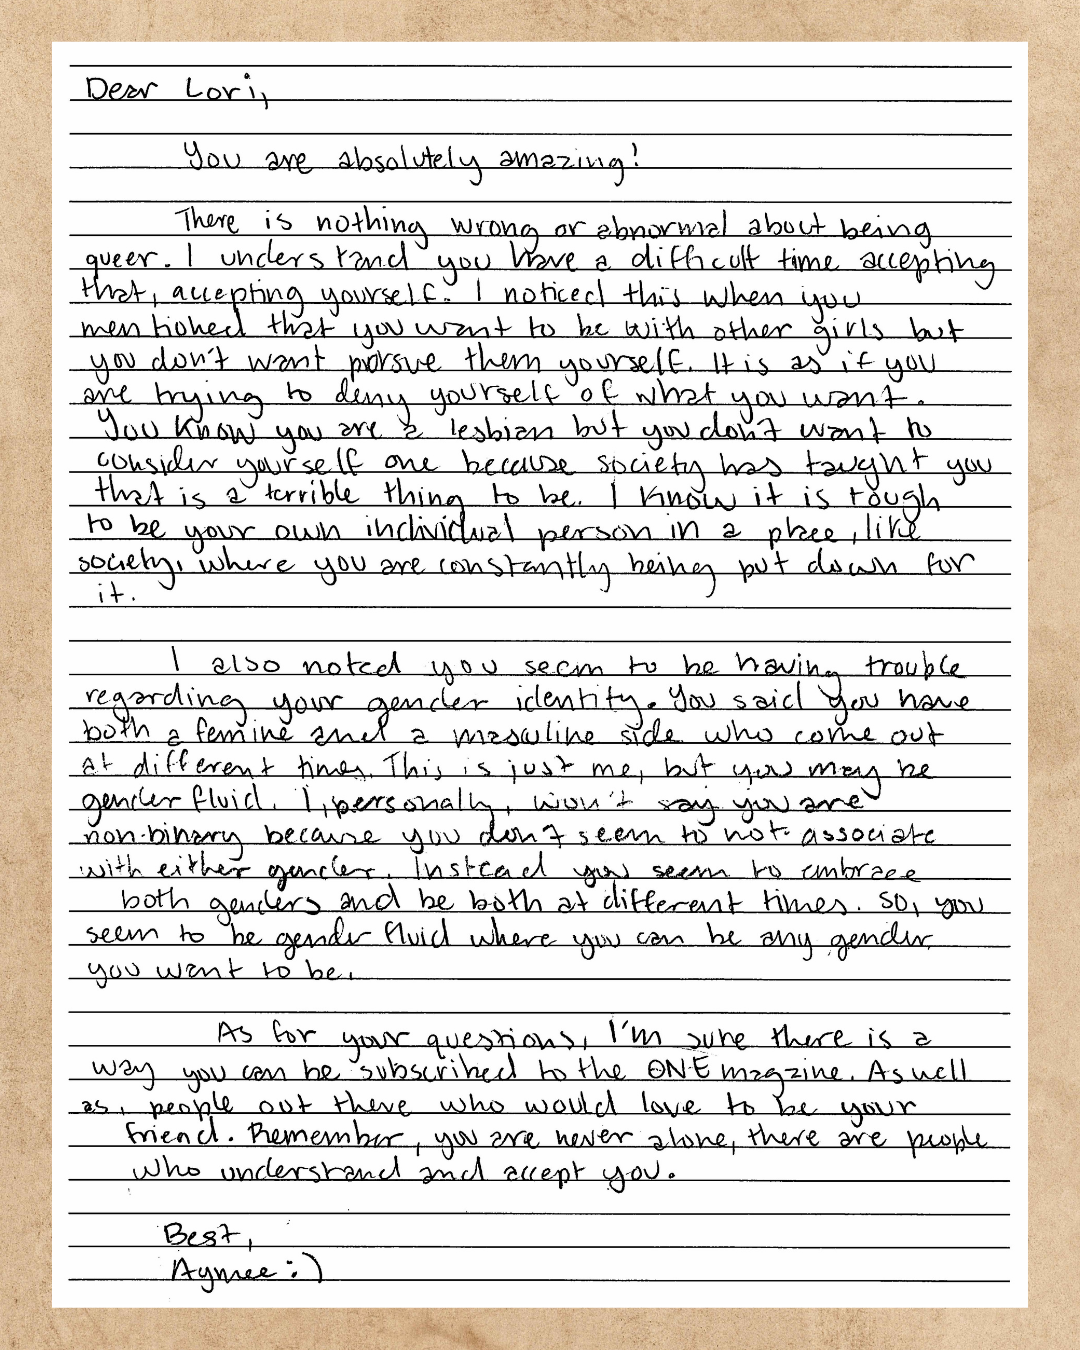 Dear Lori,
You are absolutely amazing!
There is nothing wrong or abnormal about being
queer. I understand you have a difficult time accepting
that, accepting yourself. I noticed this when you
mentioned that you want to be with other girls but
you don't want porsue them yourself. It is as if you
are trying to deny yourself of what you want.
You know you are a lesbian but you don't want to
consider yourself one because society has taught you
that is a terrible thing to be. I know it is tough
to be your own individual person in a place, like
society, where you are constantly being put down for
it.
I also noted you seem to be having trouble
regarding your gender identity. You said you have
both a femine and a masculine side who come out
at different times. This is just me, but you may be
gender fluid. I, personally, won't say you are
non-binary because you don't seem to not associate
with either gender. Instead you seem to embrace
both genders and be both at different times. So, you
seem to be gender fluid where you can be any gender
you want to be.
As for your questions, I'm sure there is a
way you can be subscribed to the ONE magzine. As well
as, people out there who would love to be your
friend. Remember, you are never alone, there are people
who understand and accept you.
Best,
Aymee :)